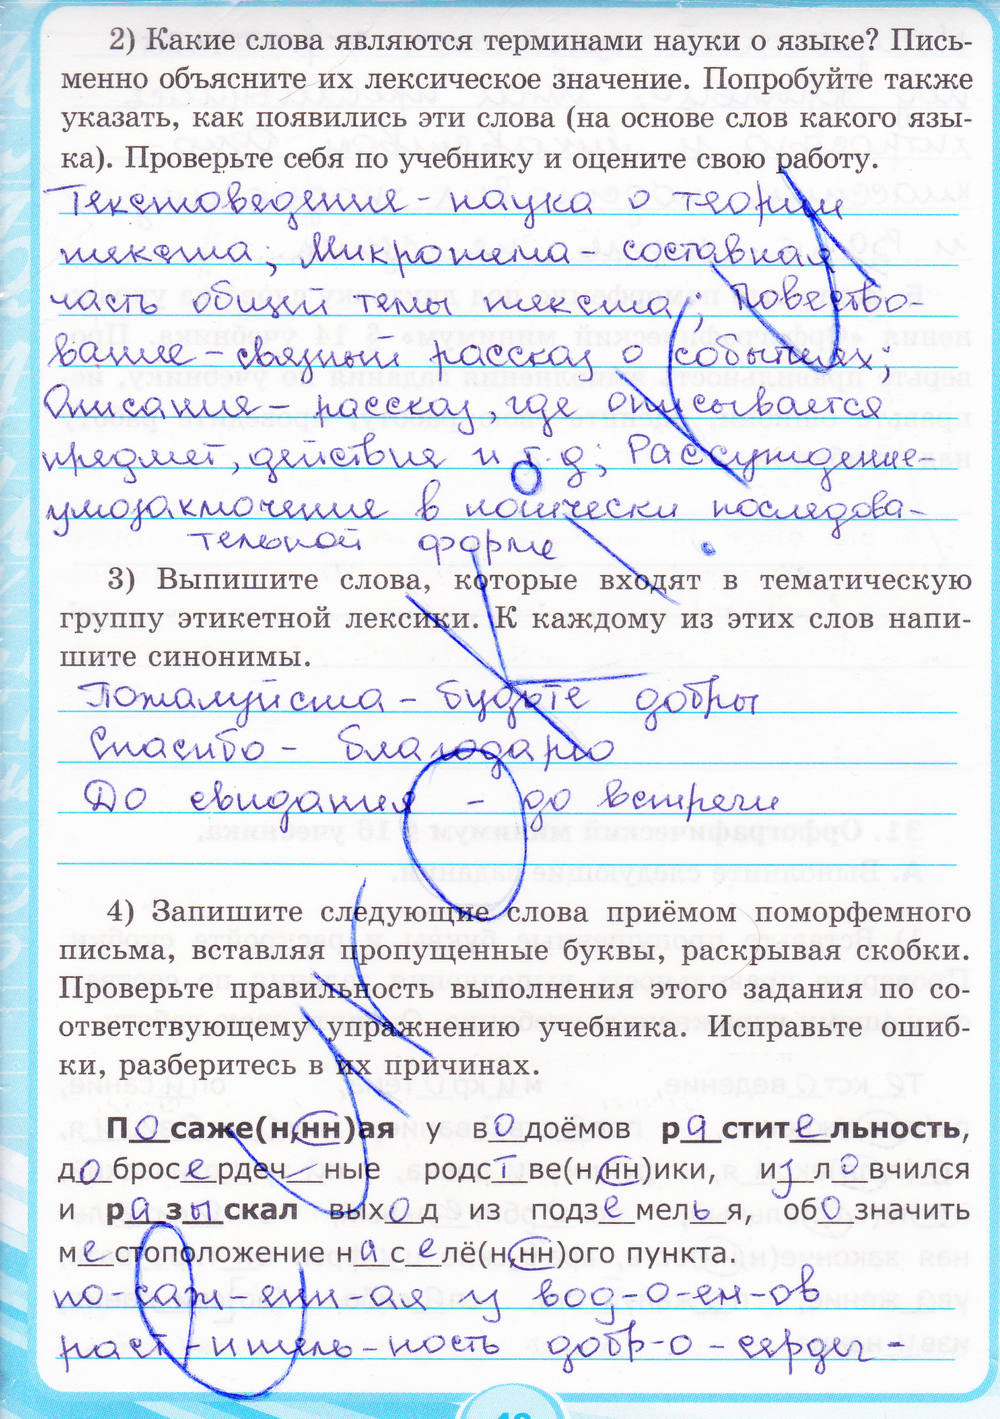 2) Какие слова являются терминами науки о языке? Пись-
менно объясните их лексическое значение. Попробуйте также
указать, как появились эти слова (на основе слов какого язы-
ка). Проверьте себя по учебнику и оцените свою работу.
Текстоведение - наука о теории
текста; Микротема - составная
часть общий темы текста; Повество-
вание - связный рассказ о событиях;
Описания - рассказ, где описывается
предмет, действие и т.д; Рассуждение -
умозаключение в логически последова-
тельной форме
3) Выпишите слова, которые входят в тематическую
группу этикетной лексики. К каждому из этих слов напи-
шите синонимы.
Пожалуйста - будьте добры
Спасибо - благодарю
До свидания - до встречи
4) Запишите следующие слова приёмом поморфемного
письма, вставляя пропущенные буквы, раскрывая скобки.
Проверьте правильность выполнения этого задания по со-
ответствующему упражнению учебника. Исправьте ошиб-
ки, разберитесь в их причинах.
Посаже(н,нн)ая у водоёмов растительность,
добросердеч ные родств е(н,нн)ики, изловчился
и разыскал выход из подземелья, обозначить
местоположение населё(н,нн)ого пункта.
по-саж-енн-ая у вод-о-ем-ов
раст-итель-ность добр-о-сердеч-